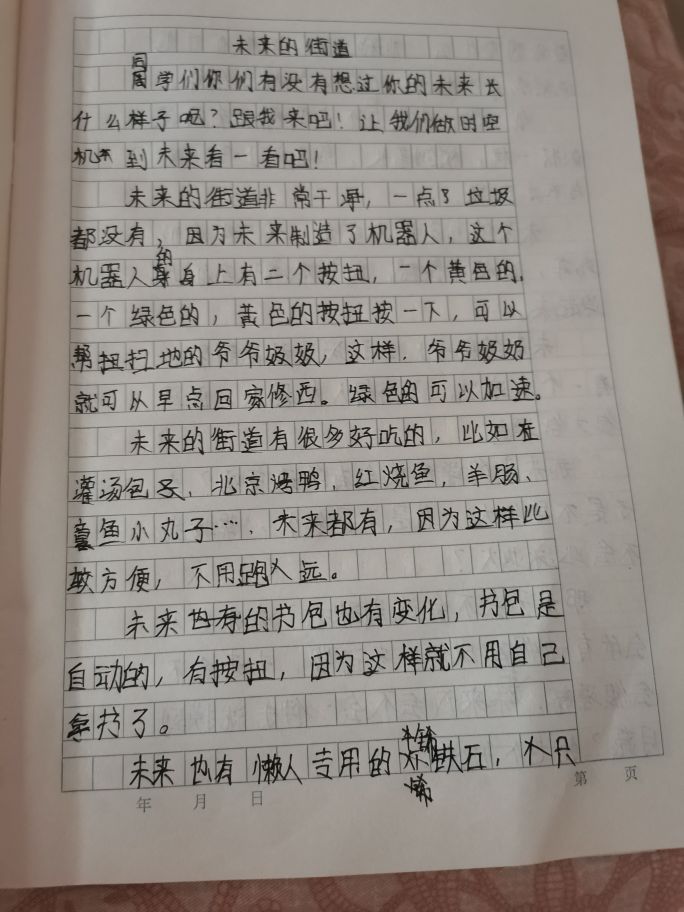 未来的街道
同学们你们有没有想过你的未来长
什么样子呢？跟我来吧！让我们做时空
机来到未来看一看吧！
未来的街道非常干净，一点了垃圾
都没有，因为未来制造了机器人，这个
机器人的身上有二个按扭，一个黄色的，
一个绿色的，黄色的按扭按一下，可以
帮扭扫地的爷爷奶奶，这样，爷爷奶奶
就可以早点回家修西。绿色的可以加速。
未来的街道有很多好吃的，比如在
灌汤包子、北京烤鸭、红烧鱼，羊肠、
鱼小丸子…，未来都有，因为这样比
较方便，不用跑太远。
未来也有的书包也有变化，书包是
自动的，有按扭，因为这样就不用自己
拿了。
未来也有懒人专用的铁石，不只
年 月 日
第 页